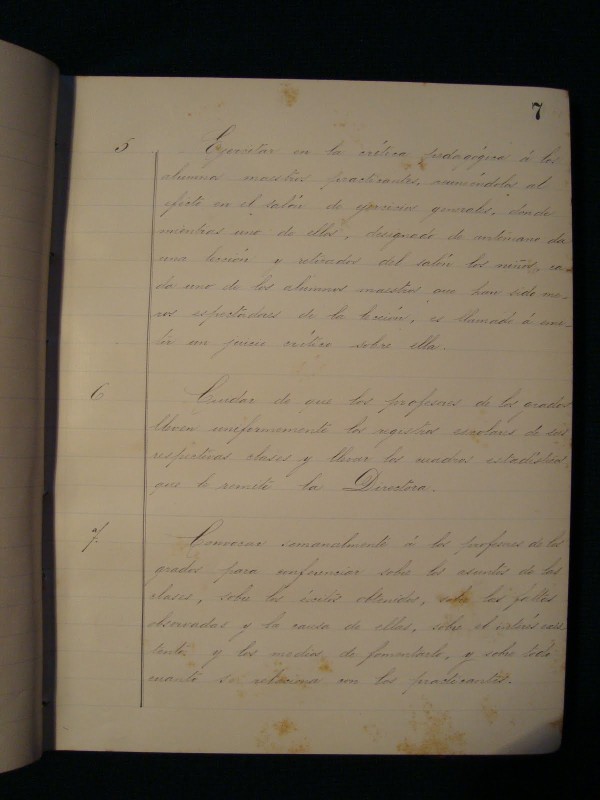 7
5 Ejercitar en la crítica pedagógica á los
alumnos maestros practicantes, reuniéndolos al
efecto en el salón de ejercicios generales, donde
mientras uno de ellos, designado de antemano da
una lección y retirados del salón los niños, ca-
da uno de los alumnos maestros que han sido me-
ros espectadores de la lección, es llamado á emi-
tir un juicio crítico sobre ella.
6 Cuidar de que los profesores de los grados
lleven uniformemente los registros escolares de sus
respectivas clases y llevar los cuadros estadísticos
que le remete la Directora.
7. Convocar semanalmente á los profesores de los
grados para conferenciar sobre los asuntos de las
clases, sobre los éxitos obtenidos, sobre las faltas
observadas y la causa de ellas, sobre el interés exis-
tente y los medios de fomentarlo, y sobre todo
cuanto se relaciona con los practicantes.